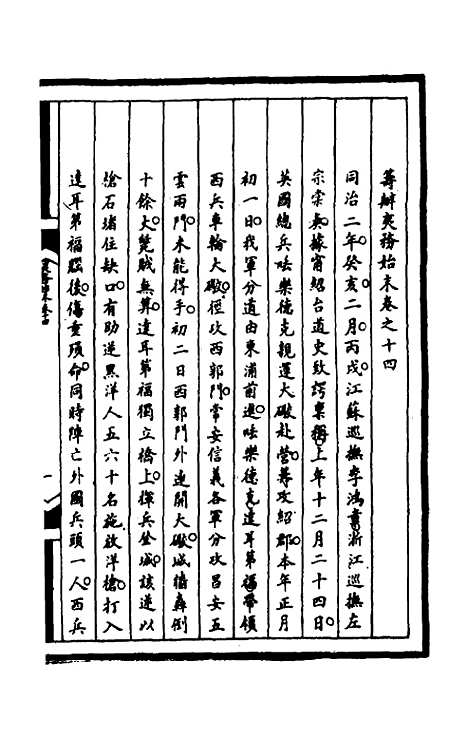 籌辦夷務始末卷之十四
同治二年癸亥二月丙戌江蘇巡撫李鴻章浙江巡撫左
宗棠奏據甯紹台道史致諤稟稱上年十二月二十四日
英國總兵呿樂德克親運大礮赴營籌攻紹郡本年正月
初一日我軍分道由東浦前進呿樂德克達耳第福帶領
西兵車輪大礮徑攻西郭門常安信義各軍分攻昌安五
雲兩門未能得手初二日西郭門外連開大礮城牆轟倒
十餘丈斃賊無算達耳第福獨立橋上揮兵登城該逆以
槍石堵住缺口有助逆黑洋人五六十名施放洋槍打入
達耳第福腦後傷重殞命同時陣亡外國兵頭一人西兵